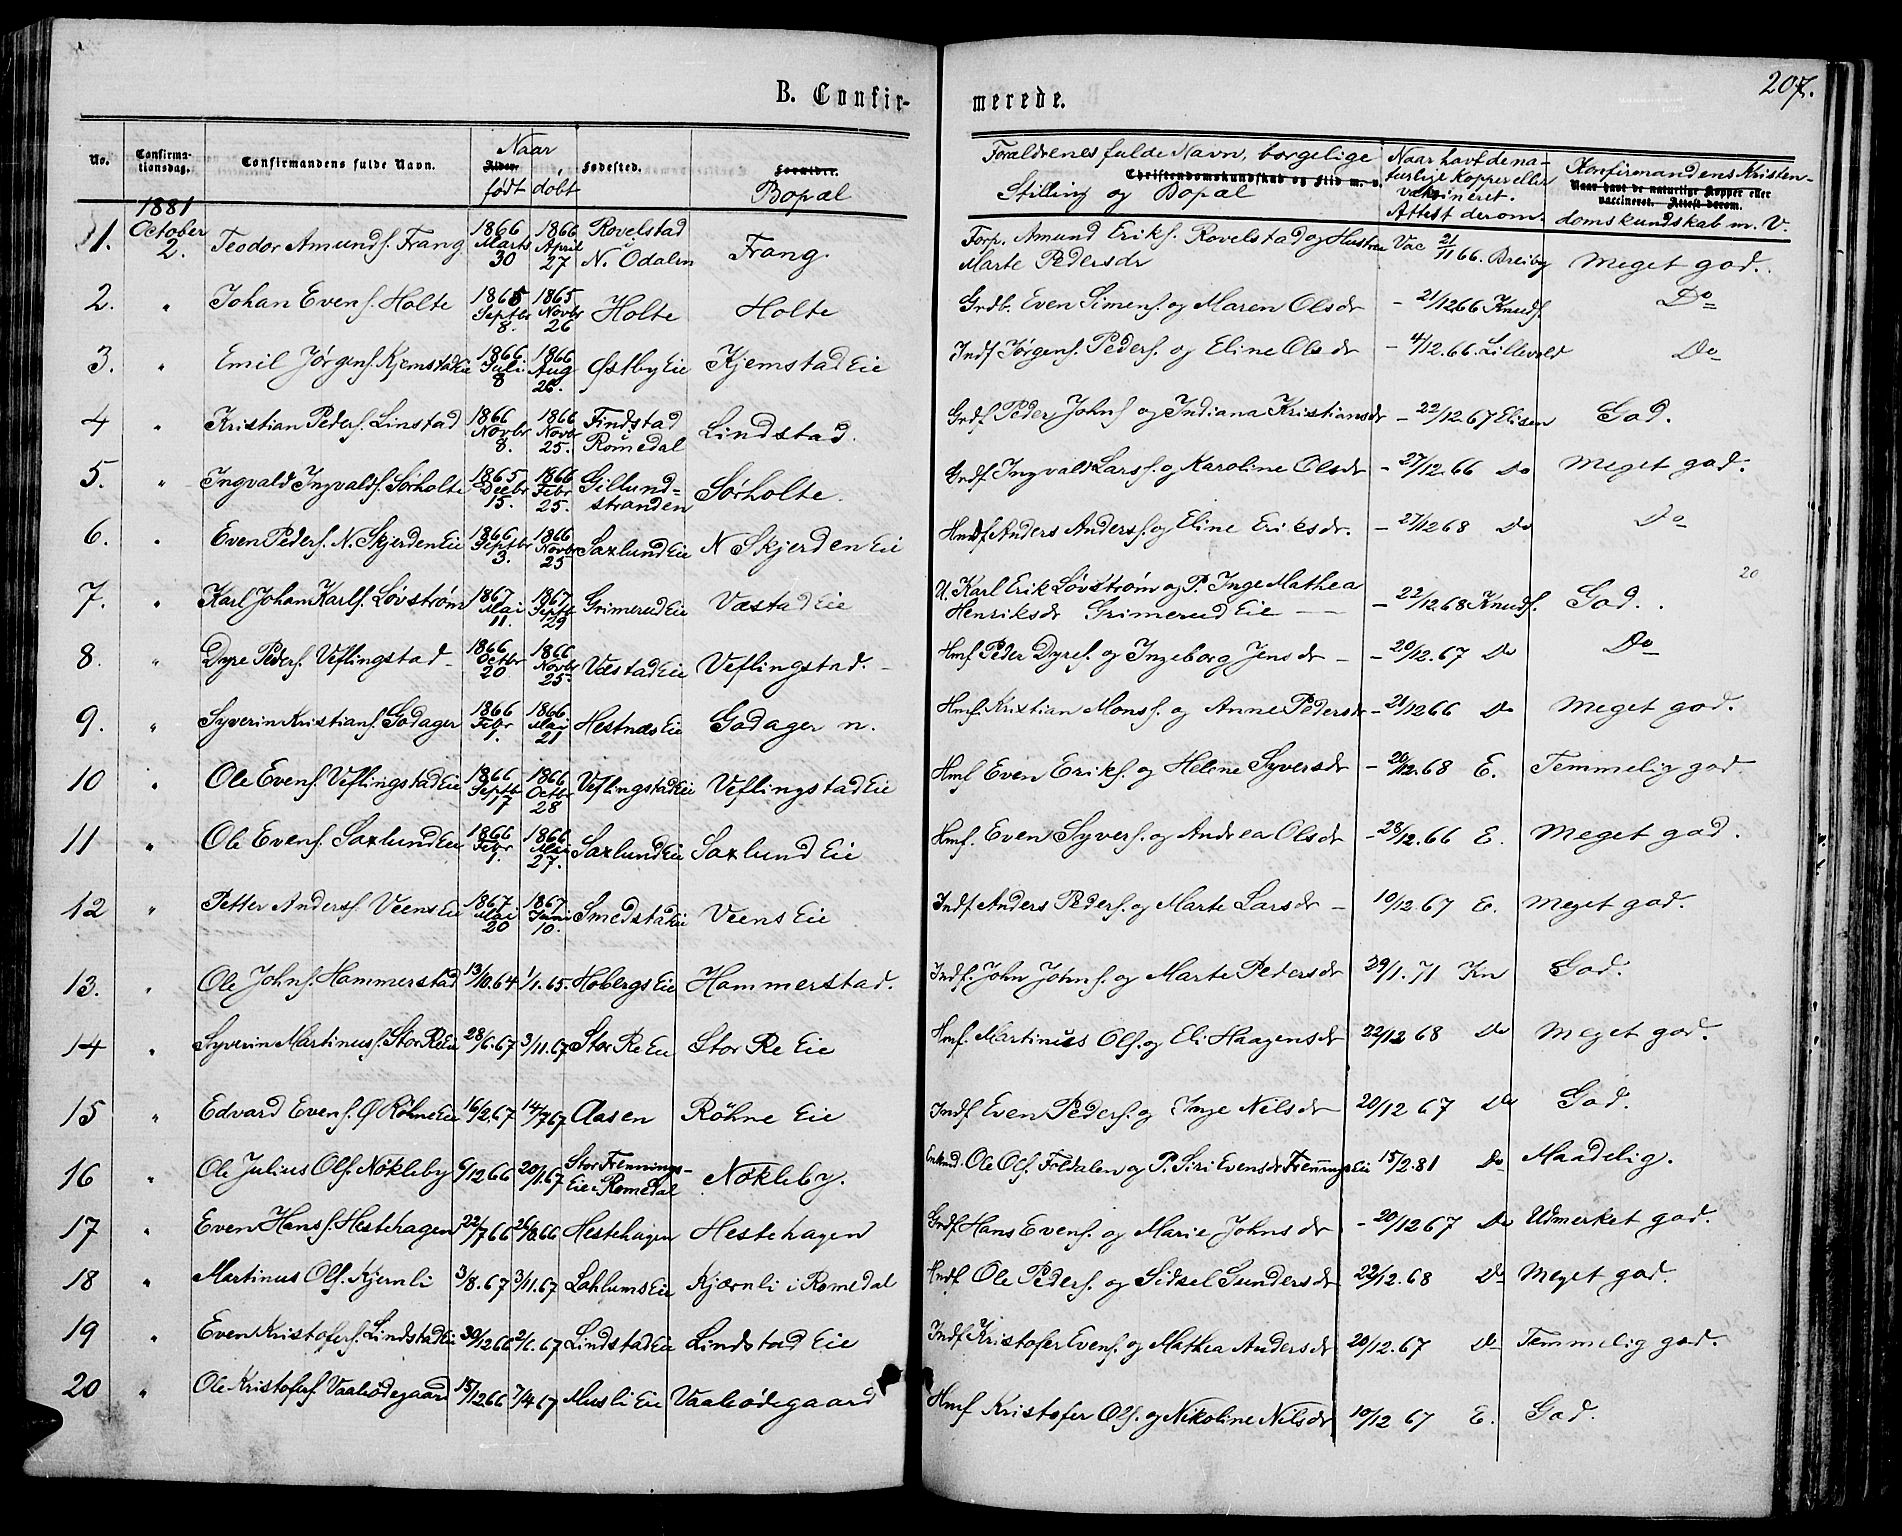 207.
B. Confirmerede.
No. | Confirmationsdag. | Confirmandens fulde Navn. | Naar født | døbt | Fødested. | Bopæl | Forældrenes fulde Navn, borgelige Stilling og Bopæl | Naar havt de naturlige Kopper eller vakcineret. Attest derom. | Konfirmandens Kristendomskundskab m. V.
1. | 1881 October 2. | Teodor Amunds. Frang | 1866 Marts 30 | 1866 April 27 | Rovelstad N. Odalen | Frang. | Forp. Amund Eriks. Rovelstad og Hustru Marte Pedersdr | Vac 21/11 66. Breiby | Meget god.
2. | " | Johan Evens. Holte | 1865 Septbr 8. | 1865 Novbr 26 | Holte | Holte | Grdb. Even Simens. og Maren Olsdr | - 21/12.66 Knuds. | Do
3. | " | Emil Jørgens. Kjemstadeie | 1866 Juli 8 | 1866 Aug 26. | Østby Eie | Kjemstad Eie | Indf Jørgens. Peders. og Eline Olsdr | - 4/12.66. Lillevold | Do
4 | " | Kristian Peders. Linstad | 1866 Novbr 8. | 1866 Novbr 25. | Findstad Romedal | Lindstad. | Grdf Peder Johns og Indiana Kristiansdr | - 22/12.67 Elisen | God.
5. | " | Ingvald Ingvalds. Sørholte | 1865 Decbr 15. | 1866 Febr 25. | Gillundstranden | Sørholte. | Grdf Ingvald Lars. og Karoline Olsdr | - 27/12.66 Do | Meget god.
6. | " | Even Peders. N. Skjerden Eie | 1866 Septbr 3. | 1866 Novbr 25 | Saxlund Eie | N Skjerden Eie | Hmdf Anders Anders. og Eline Eriksdr. | - 27/12 68 Do | Do
7. | " | Karl Johan Karls. Løvstrøm | 1867 Mai 11. | 1867 Septb 29 | Grimerud Eie | Væstad Eie | U. Karl Erik Løvstrøm og P. Inge Mathea Henriksdr Grimerud Eie | - 22/12.68 Knuds. | God.
8. | " | Dyre Peders. Veflingstad | 1866 Octbr 20 | 1866 Novbr 25. | Væstad Eie | Veflingstad. | Hmf Peder Dyres. og Ingeborg Jensdr | - 20/12.67 Do | Do
9. | " | Syverin Kristians. Godager | 1866 Febr 1. | 1866 Mai 21 | Hestnæs Eie | Godager n. | Hmf. Kristian Mons. og Anne Pedersdr | - 21/12 66 Do | Meget god.
10 | " | Ole Evens. Veflingstad Eie | 1866 Septbr 17 | 1866 Octbr 28 | Veflingstad Eie | Veflingstad Eie | Hmf Even Eriks. og Helene Syversdr | - 20/12.68 E. | Temmelig god.
11 | " | Ole Evens. Saxlund Eie | 1866 Febr 1. | 1866 Mai 27. | Saxlund Eie | Saxlund Eie | Hmf. Even Syvers. og Andrea Olsdr | - 28/12.66 E. | Meget god.
12 | " | Petter Anders. Veens Eie | 1867 Mai 20 | 1867 Juni 10. | Smedstad Eie | Veens Eie | Indf Anders Peders. og Marte Larsdr | 10/12.67 E. | Meget god.
13. | " | Ole Johns. Hammerstad | 13/10.64 | 1/1.65. | Hobergs Eie | Hammerstad. | Indf. John Johns. og Marte Pedersdr | 29/1.71 Kn | God.
14 | " | Syverin Martinus. Stor Re Eie | 28/6.67 | 3/11.67 | Stor Re Eie | Stor Re Eie | Hmf. Martinius Ols. og Eli Haagensdr | 22/12 68 Do | Meget god.
15 | " | Edvard Evens. Ø Røhne Eie | 16/2.67 | 14/7 67 | Aasen | Røhne Eie | Indf Even Peders. og Inge Nilsdr | 20/12 67 Do | God.
16 | " | Ole Julius Ols. Nøkleby | 6/12 66 | 20/1.67 | Stor Frennings-Eie i Romedal | Nøkleby. | Enkmd. Ole Ols. Foldalen og P. Siri Evensdr Frennings Eie | 15/2.81 Do | Maadelig.
17 | " | Even Hans. Hestehagen | 22/7 66 | 26/8.66 | Hestehagen | Hestehagen | Grdf Hans Evens. og Marie Johnsdr | - 20/12 67 Do | Udmerket god.
18 | " | Martinus Ols. Kjernli | 3/8.67 | 3/11.67 | Lahlums Eie | Kjærnli i Romedal | Indf Ole Peders. og Sidsel Gundersdr | 22/12.68 Do | Meget god.
19 | " | Even Kristofers. Lindstad Eie | 30/12 66 | 2/6.67 | Lindstad Eie | Lindstad Eie | Indf Kristofer Evens. og Mathea Andersdr | 20/12.67 Do | Temmelig god.
20 | " | Ole Kristofers. Vaaleødegaard | 15/12 66 | 7/4 67 | Musli Eie | Vaaleødegaard | Hmf Kristofer Ols. og Nikoline Nilsdr | 10/12 67 E. | God.